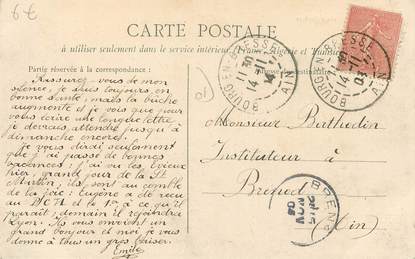 6€
CARTE POSTALE
à utiliser seulement dans le service intérieur (France, Algérie et Tunisie
Partie réservée à la correspondance :
BOURG-EN-BRESSE
14 -11
03
AIN
BOURG-EN-BRESSE
14 -11
03
AIN
Rassurez-vous de mon
silence, je suis toujours en
bonne santé, mais la tâche
augmente et je vois que pour
vous écrire une longue lettre,
je devrais attendre jusqu'à
dimanche encore.
Je vous dirai seulement
que j'ai passé de bonnes
vacances; j'ai vu les Evieux
hier, grand jour de la St
Martin, ils sont au comble
de la joie: Eugène a été reçu
au et le 1er à ce qu'il
paraît; demain il rejoindra
Lyon. Ils vous envoient un
grand bonjour et moi je vous
donne à tous un gros baiser.
Emile
Monsieur Berthodin
Instituteur à
Brénod
(Ain)
BREN
NOV
AIN